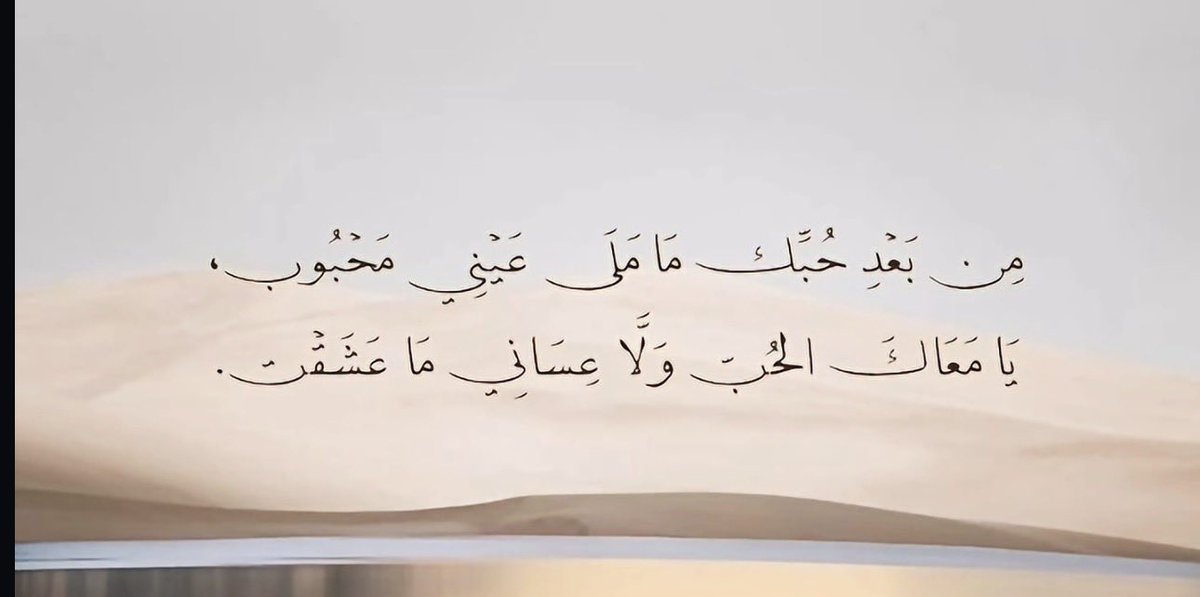 مِن بَعْدِ حُبِّك مَا مَلَى عَيْنِي مَحْبُوب،
يَا مَعَاكَ الحُبّ وَلَّا عِسَانِي مَا عَشَقْت.